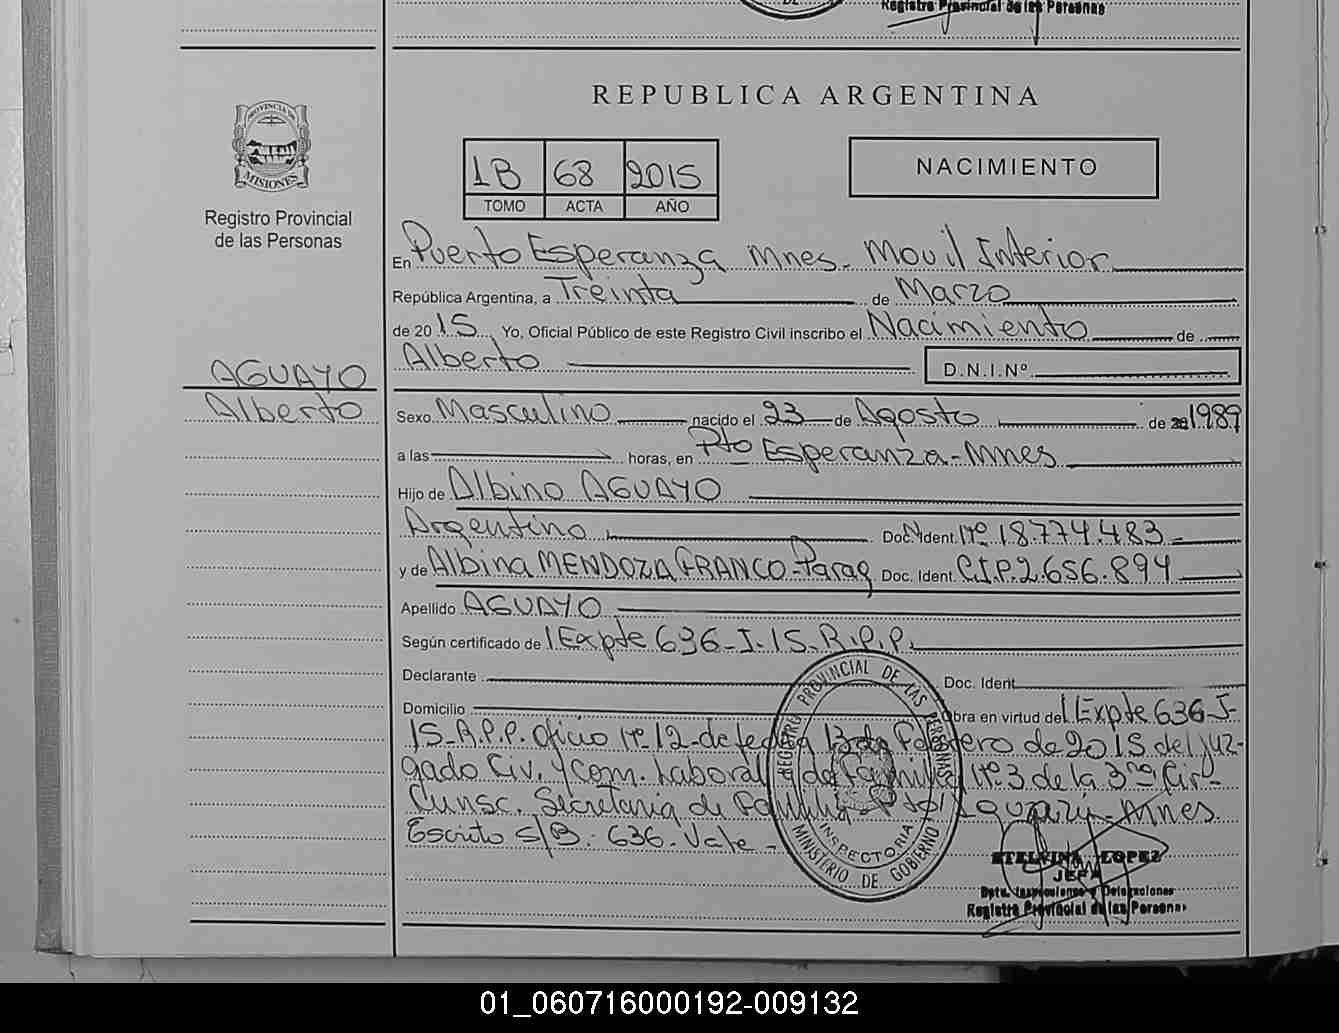 Registro Provincial de las Personas
REPUBLICA ARGENTINA
PROVINCIA DE
MISIONES
Registro Provincial
de las Personas
1B 68 2015
TOMO ACTA AÑO
NACIMIENTO
En Puerto Esperanza Mnes. Movil Interior
República Argentina, a Treinta de Marzo
de 2015 Yo, Oficial Público de este Registro Civil inscribo el Nacimiento de
Alberto
D.N.I.Nº
AGUAYO
Alberto
Sexo Masculino nacido el 23 de Agosto de 1989
a las horas, en Pto Esperanza-Mnes
Hijo de Albino AGUAYO
Argentino Doc. Ident. Nº 18.774.483
y de Albina MENDOZA FRANCO-Parag Doc. Ident. C.I.P. 2.656.894
Apellido AGUAYO
Según certificado de Expte 636-I-15-R.P.P.
Declarante Doc. Ident.
Domicilio Obra en virtud del Expte 636-I-
15-R.P.P. Oficio Nº 12-de fecha 13 de Febrero de 2015 del Juz-
gado Civ. y Com. Laboral de Familia Nº 3 de la 3ra Cir-
cunsc. Secretaria de Familia-Pto Iguazú-Mnes
Escrito s/B: 636. Vale-
REGISTRO PROVINCIAL DE LAS PERSONAS
INSPECTORIA
MINISTERIO DE GOBIERNO
ETELVINA LOPEZ
JEFA
Dpto. Inspecciones y Delegaciones
Registro Provincial de las Personas
01_060716000192-009132